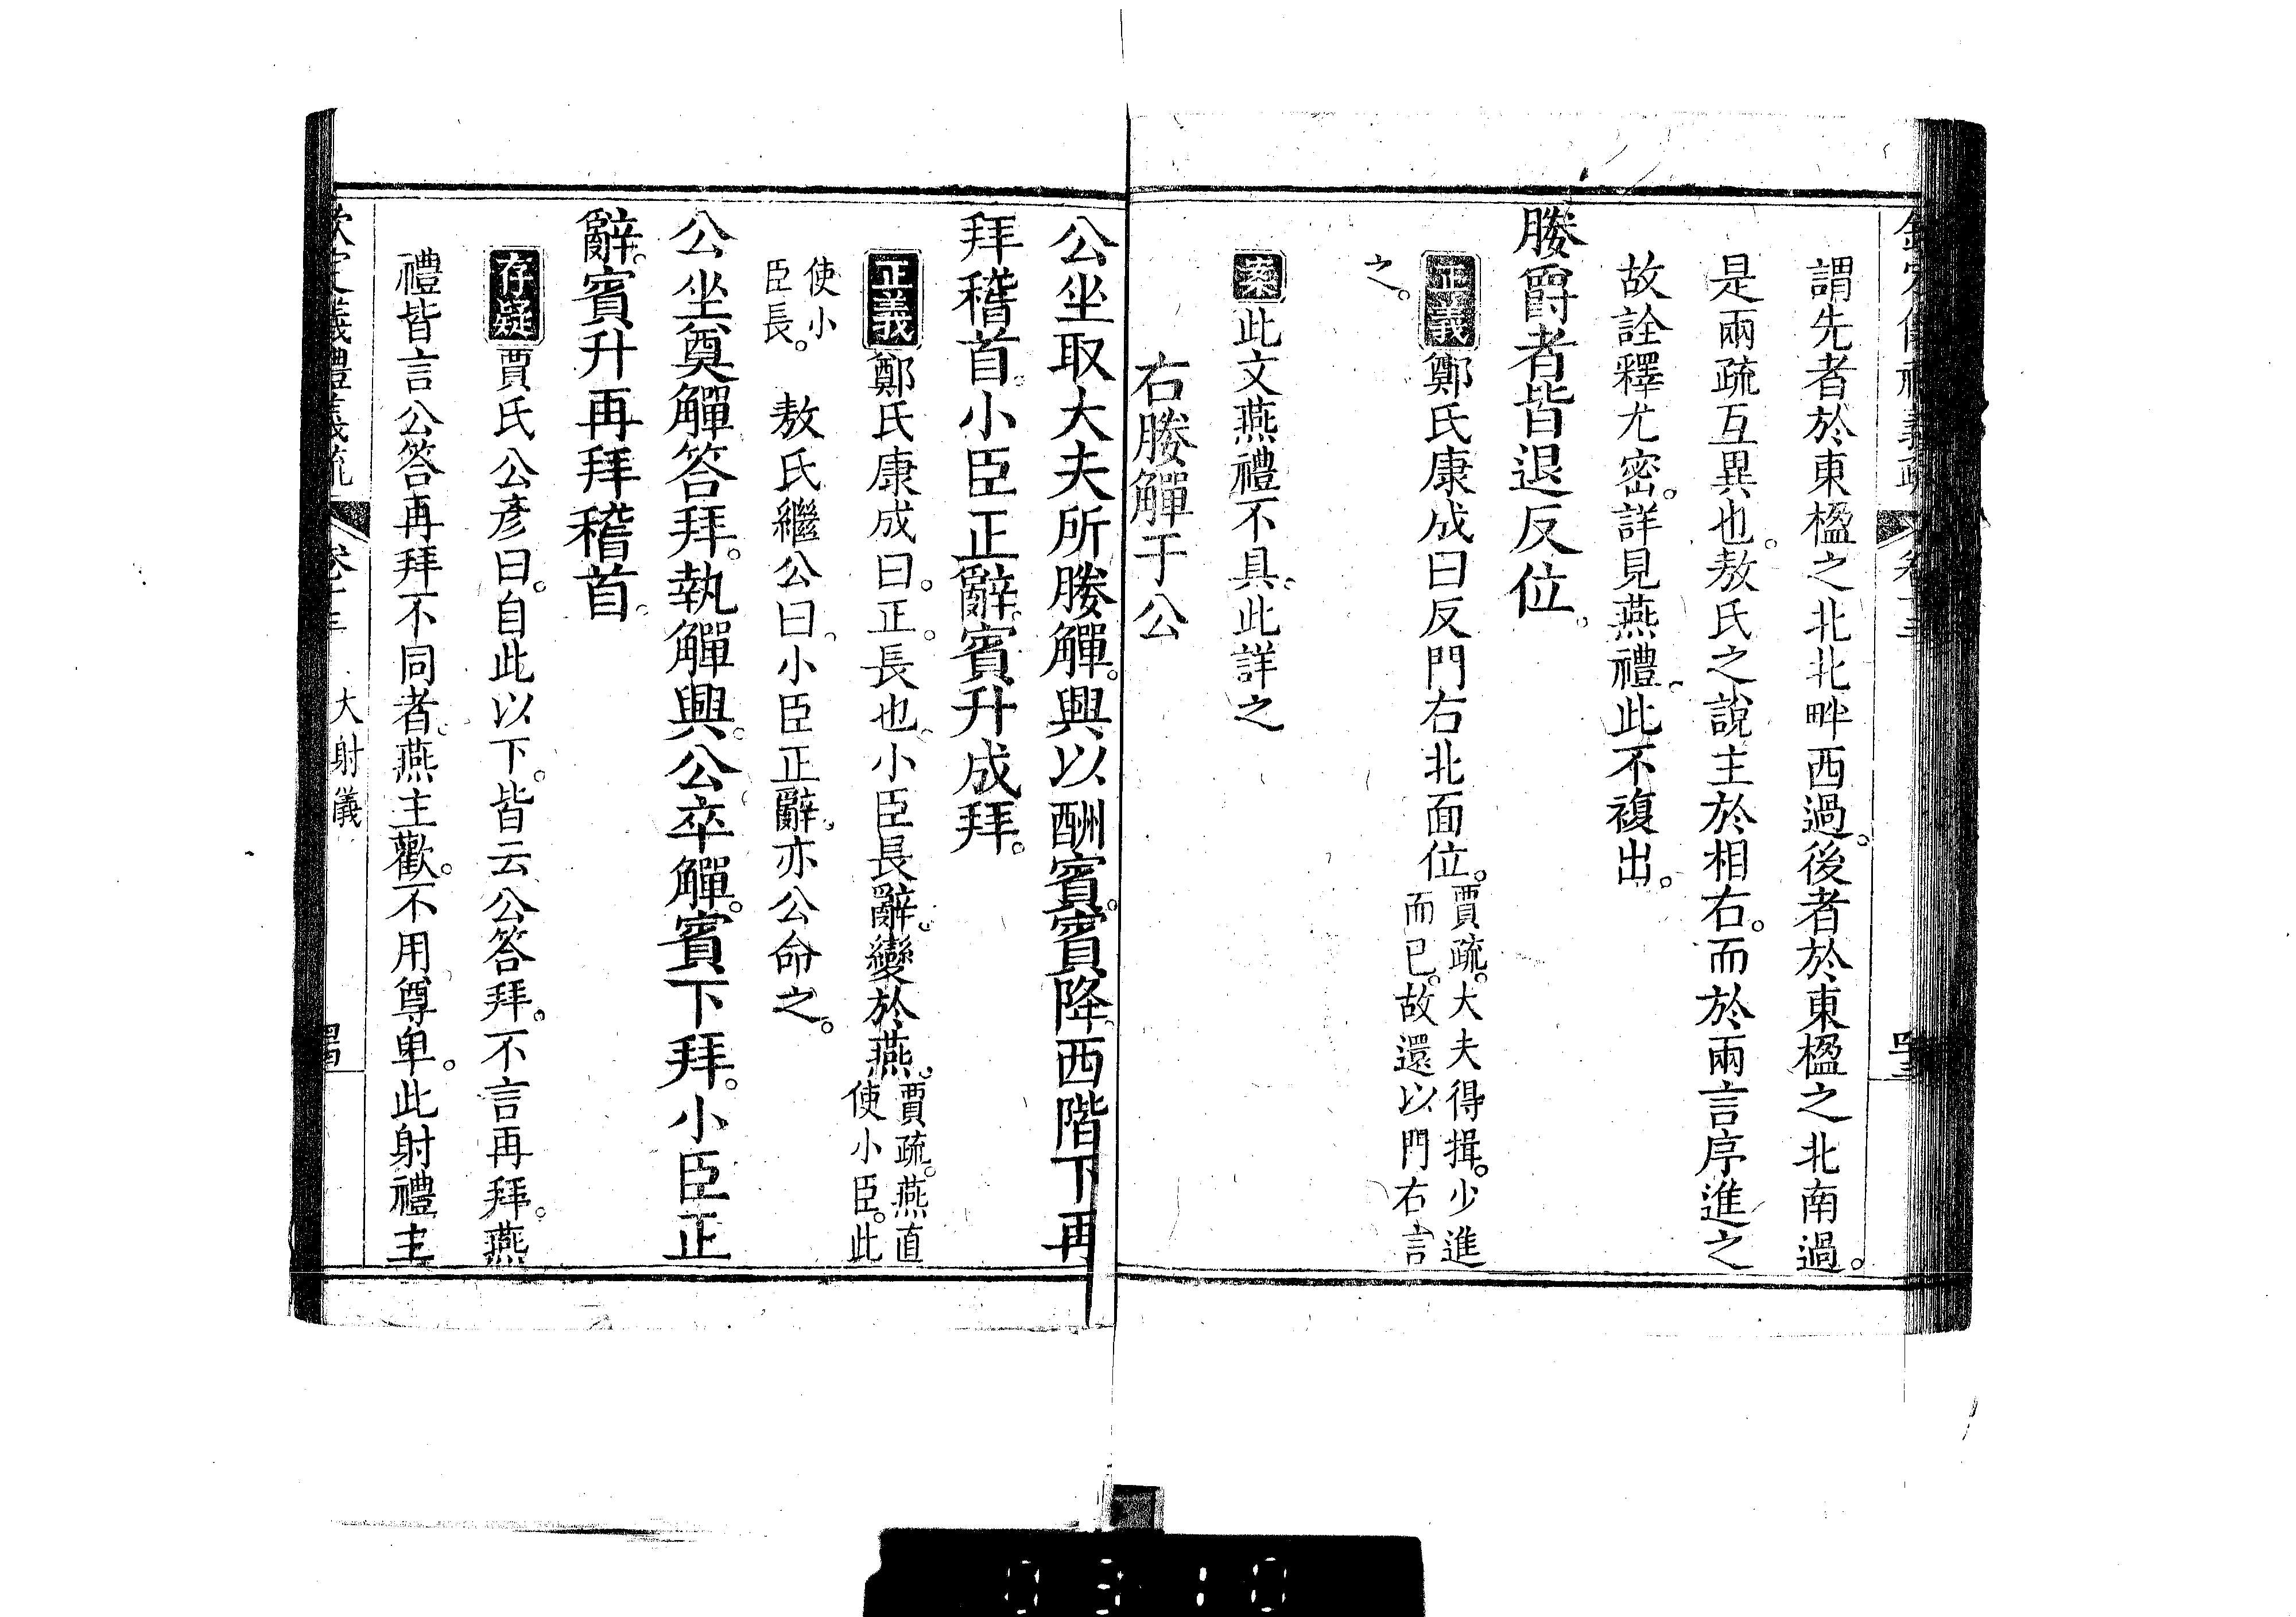 謂先者於東楹之北北畔西過。後者於東楹之北南過。
是兩疏互異也。敖氏之說主於相右。而於兩言序進之
故詮釋尤密。詳見燕禮。此不複出。
媵爵者皆退反位。
正義 鄭氏康成曰反門右北面位。賈疏。大夫得揖。少進而已。故還以門右言
之。
案 此文燕禮不具。此詳之
右媵觶于公
公坐取大夫所媵觶。興以酬賓。賓降西階下再
拜稽首。小臣正辭。賓升成拜。
正義 鄭氏康成曰。正。長也。小臣長辭。變於燕。賈疏。燕直使小臣。此
使小臣長。 敖氏繼公曰。小臣正辭。亦公命之。
公坐奠觶答拜。執觶興。公卒觶。賓下拜。小臣正
辭。賓升再拜稽首。
存疑 賈氏公彥曰。自此以下。皆云公答拜。不言再拜。燕
禮皆言公答再拜不同者。燕主歡。不用尊卑。此射禮主
欽定儀禮義疏 卷十三 大射儀
03 10